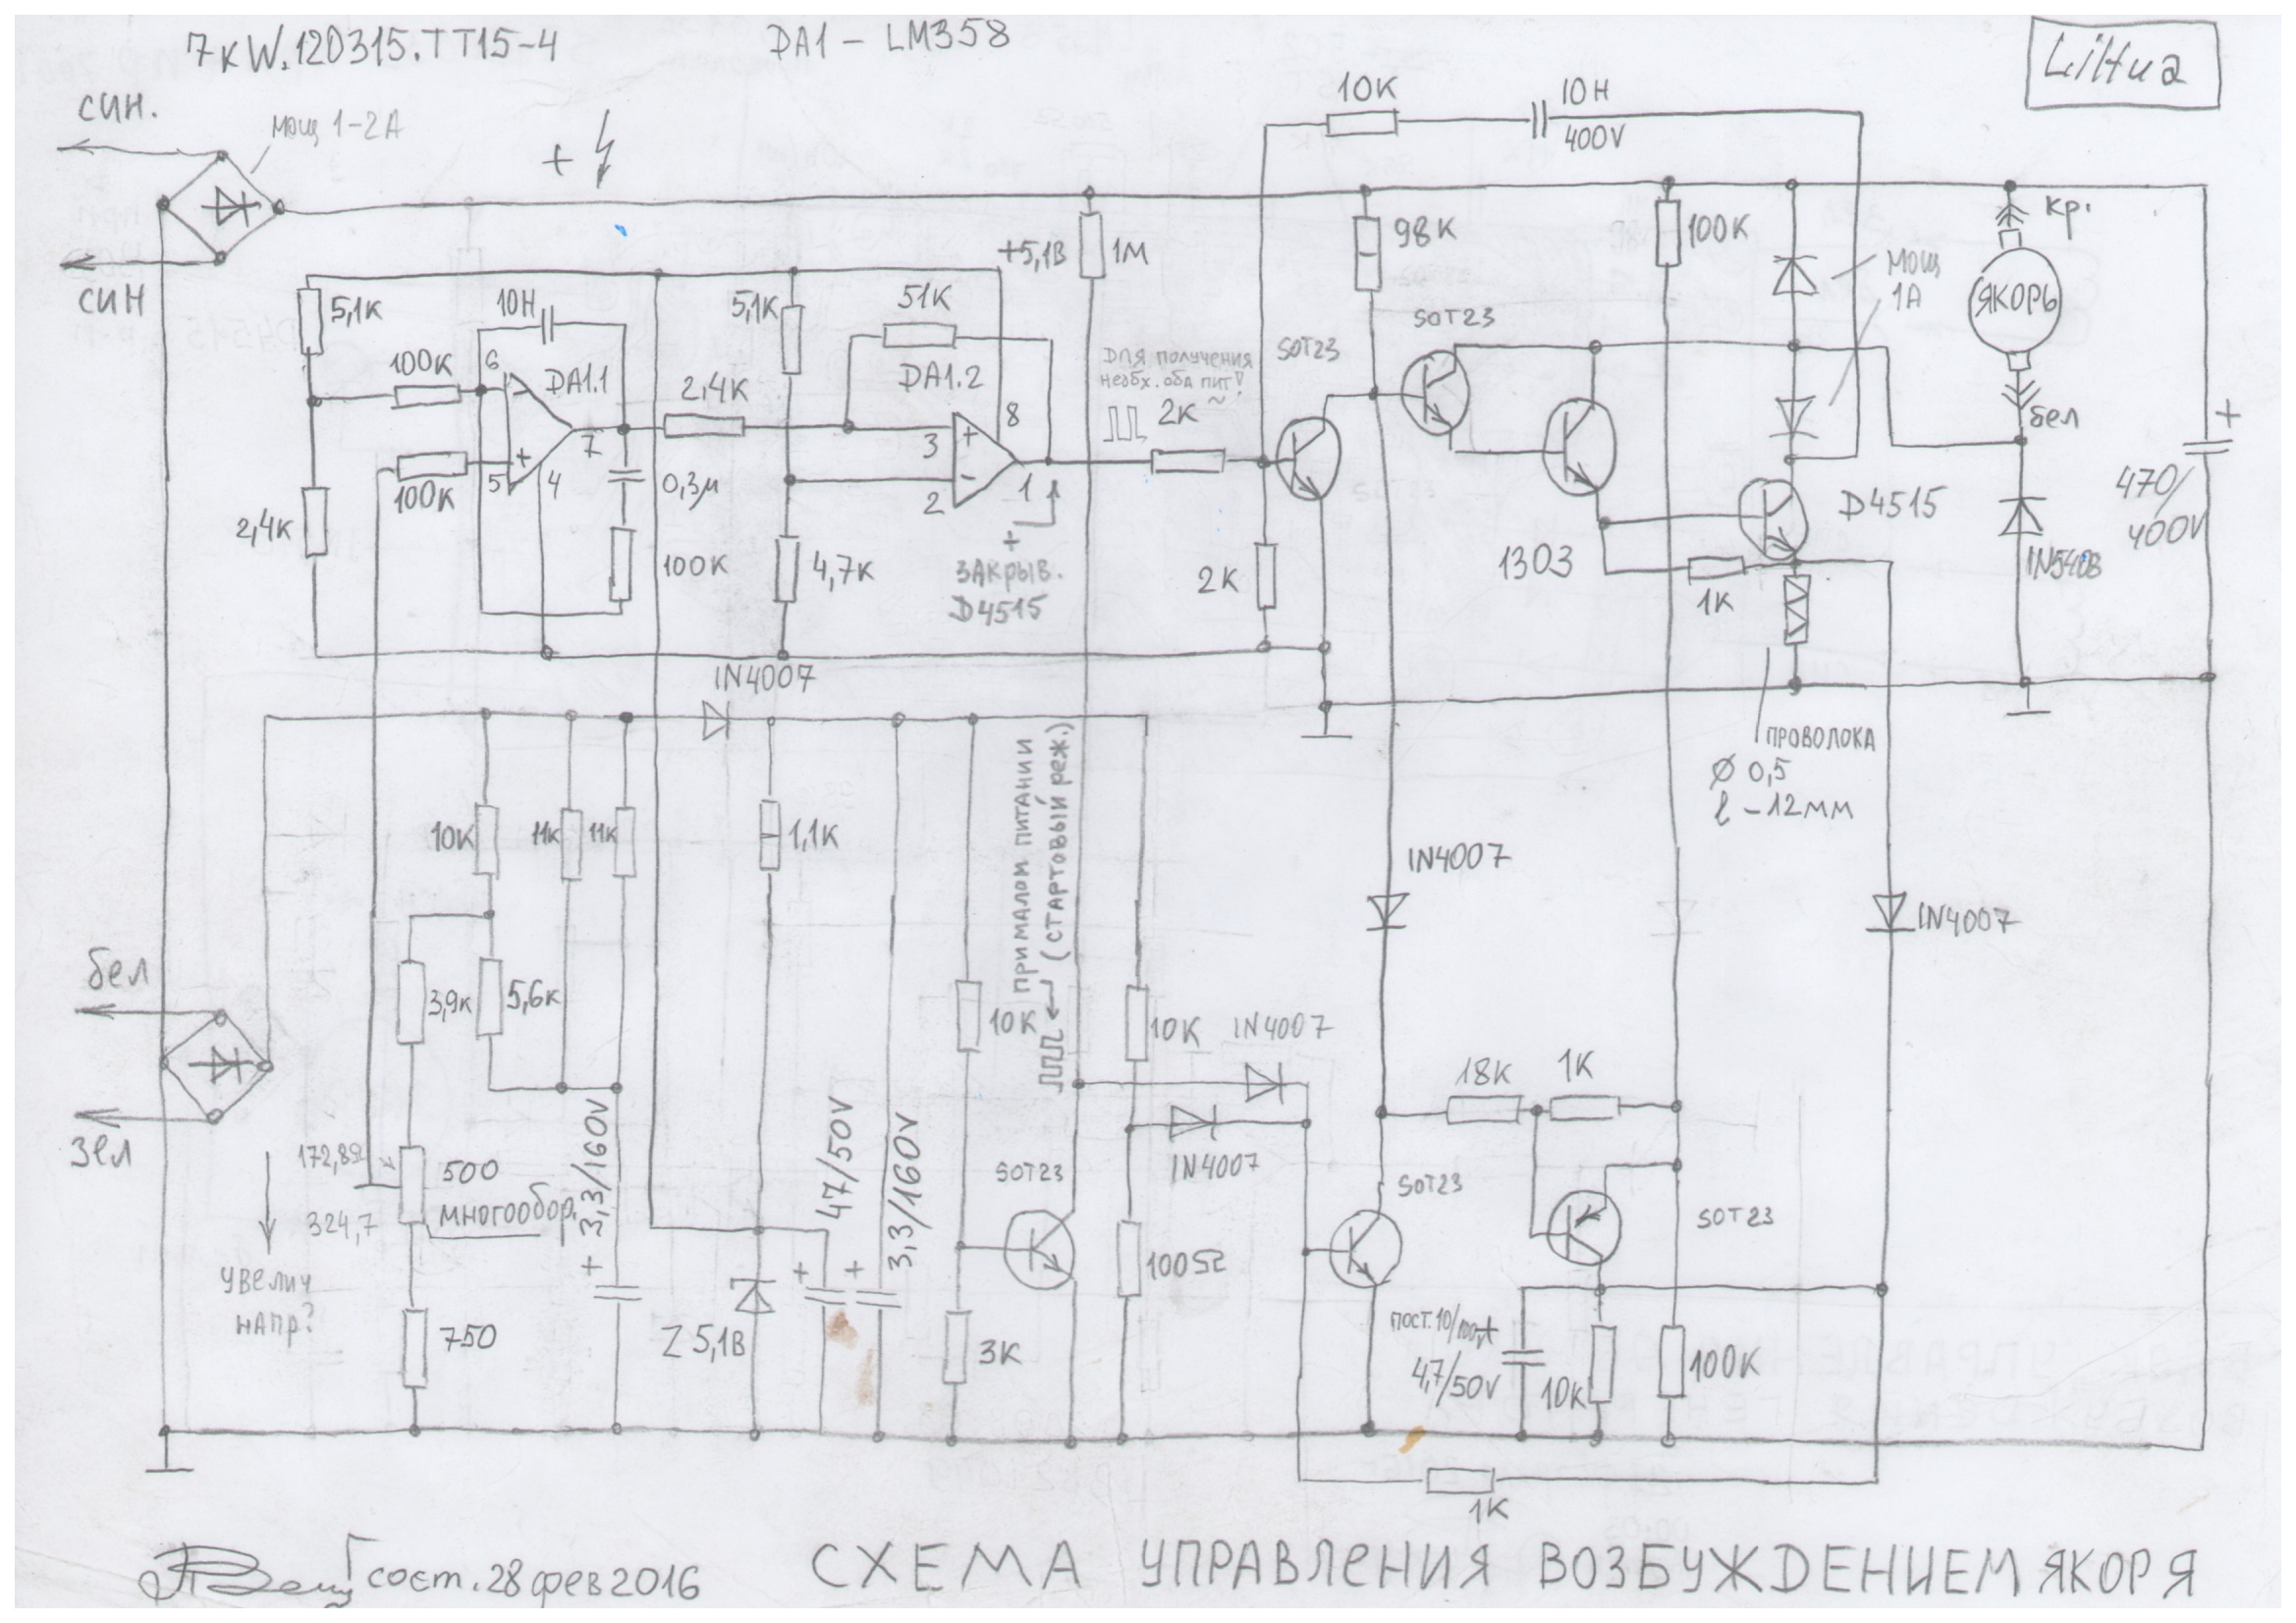 7кW.120315.TT15-4
DA1 - LM358
LiHua
син.
мощ 1-2А
+
син
10К
10Н
400V
кр.
+5,1В
1М
98К
100К
мощ
1А
ЯКОРЬ
бел
5,1К
10Н
5,1К
51К
SOT23
SOT23
100К
6
DA1.1
2,4К
DA1.2
для получения
необх. оба пит!
~
2К
7
3
8
+
5
4
100К
0,3м
2
1
2,4К
100К
4,7К
+
ЗАКРЫВ.
D4515
2К
1303
1К
D4515
470/
400V
+
IN5408
IN4007
ПРОВОЛОКА
Ø 0,5
ℓ - 12мм
10К
11К
11К
1,1К
при малом питании
(стартовый реж.)
IN4007
IN4007
бел
зел
3,9К
5,6К
10К
10К
IN4007
IN4007
18К
1К
172,8Ω
324,7
500
многообор.
+ 3,3/160V
47/50V
+
3,3/160V
+
SOT23
SOT23
SOT23
увелич
напр?
750
Z 5,1В
3К
100Ω
4,7/50V
10К
100К
1К
сост. 28 фев 2016
СХЕМА УПРАВЛЕНИЯ ВОЗБУЖДЕНИЕМ ЯКОРЯ